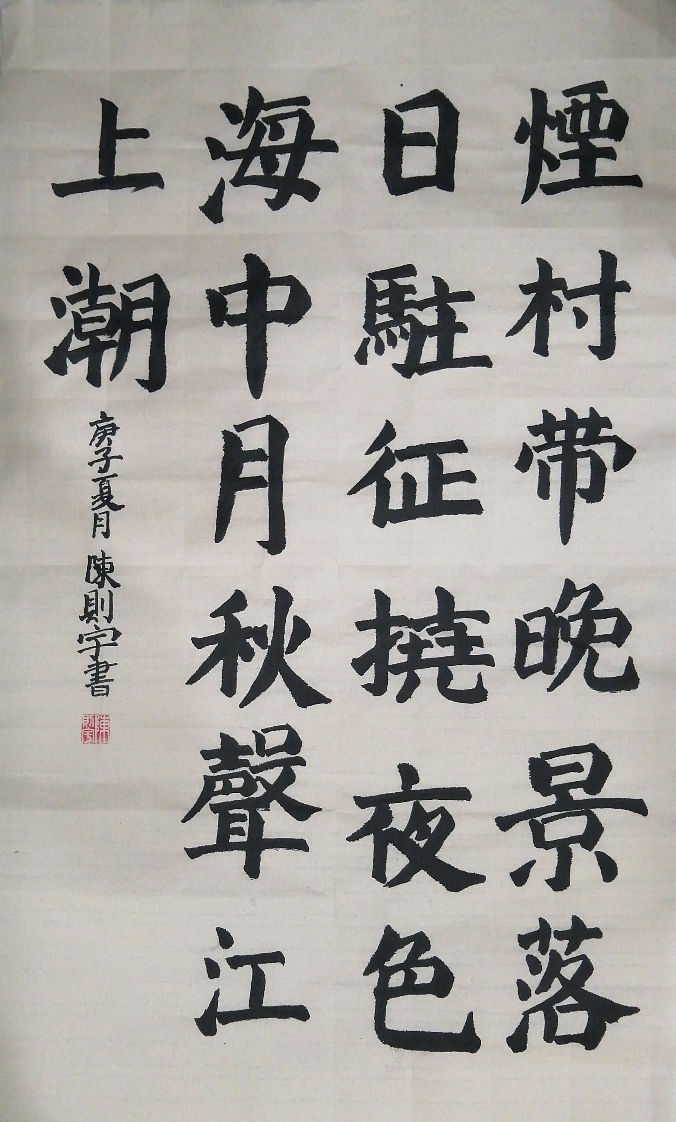 煙村带晚景落
日駐征撓夜色
海中月秋聲江
上潮
庚子夏月陳則宇書